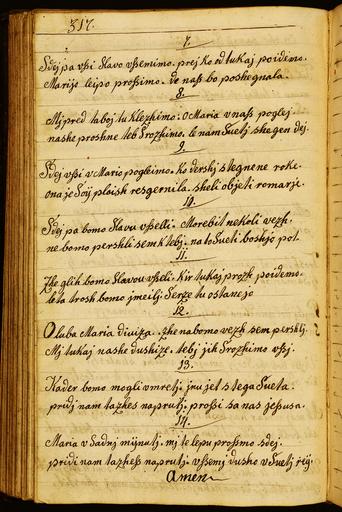 317.
7.
Sdej pa vſsi slavo vſsemimo. prej Ko od tukaj poidemo.
Marijo leipo proſsimo. de naſs bo poshegnala.
8.
Mj pred taboj tu klezhimo. O Maria v naſs poglej
nashe proshne teb Srozhimo. le nam Suetj shegen dej.
9.
Sdej vſsi v Mario pogleimo. Ko dershj stegnene roke.
ona je Soij plaish resgernila. sheli objeti romarje.
10.
Sdej pa bomo Slavu vſselli. Morebit nekoli vezh.
ne bomo pershli sem k tebj. na to Sueti boshjo pot.
11.
Zhe glih bomo Slavou vſseli. Kir tukaj prozh poidemo.
leta trosh bomo jmeilj. Serze tu ostanejo
12.
O luba Maria diviza. zhe na bomo vezh sem pershlj.
Mj tukaj nashe dushize. tebj jih Srozhimo vſsj.
13.
Kader bomo mogli vmretj jnu jet s tega Sueta.
pridj nam takhes naprutj. proſsi sa nas jeſsusa.
14.
Maria v Sadnj mijnutj. mj te lepu proſsmo sdej.
pridi nam takheſs naprutj. vſsemj dusho v Suetj rej.
Amen